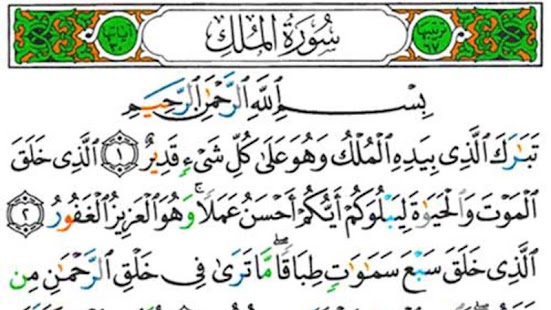 ترتيبها ٦٧
سُورَةُ المُلْكِ
آياتها ٣٠
بِسْمِ ٱللَّهِ ٱلرَّحْمَٰنِ ٱلرَّحِيمِ
تَبَٰرَكَ ٱلَّذِى بِيَدِهِ ٱلْمُلْكُ وَهُوَ عَلَىٰ كُلِّ شَىْءٍ قَدِيرٌ ١ ٱلَّذِى خَلَقَ
ٱلْمَوْتَ وَٱلْحَيَوٰةَ لِيَبْلُوَكُمْ أَيُّكُمْ أَحْسَنُ عَمَلًا ۚ وَهُوَ ٱلْعَزِيزُ ٱلْغَفُورُ ٢
ٱلَّذِى خَلَقَ سَبْعَ سَمَٰوَٰتٍ طِبَاقًا ۖ مَّا تَرَىٰ فِى خَلْقِ ٱلرَّحْمَٰنِ مِن